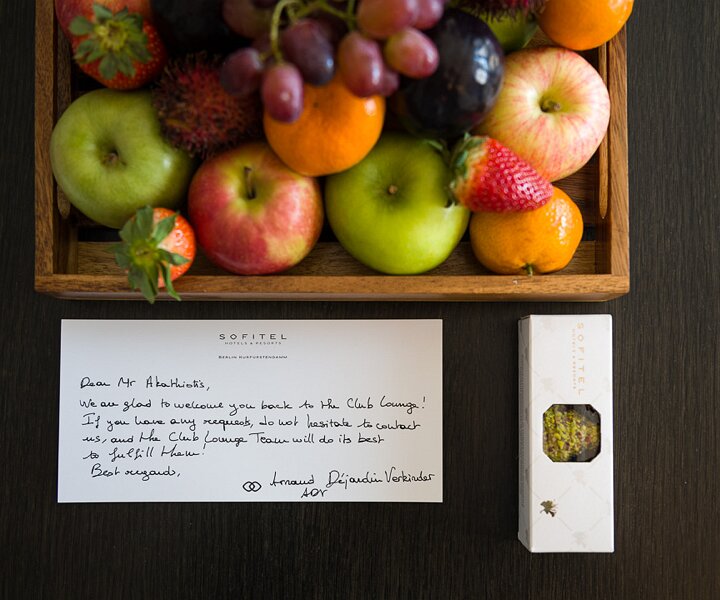 SOFITEL
HOTELS & RESORTS
BERLIN KURFÜRSTENDAMM
Dear Mr Akathiotis,
We are glad to welcome you back to the Club Lounge!
If you have any requests, do not hesitate to contact
us, and the Club Lounge Team will do its best
to fulfill them!
Best regards,
Arnaud Déjardin Verkinder
SOFITEL
HOTELS & RESORTS